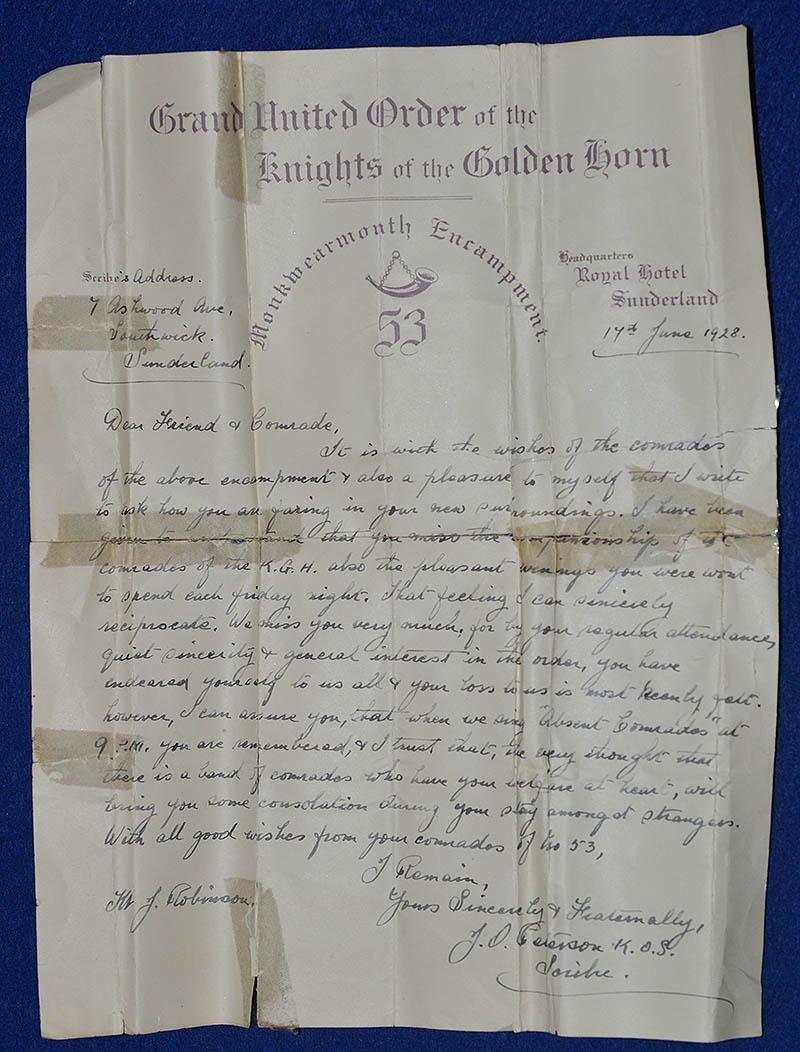 Grand United Order of the
Knights of the Golden Horn
Monkwearmouth Encampment.
53
Scribe's Address.
7 Ashwood Ave,
Southwick.
Sunderland.
Headquarters
Royal Hotel
Sunderland
17th June 1928.
Dear Friend & Comrade,
It is with the wishes of the comrades
of the above encampment & also a pleasure to myself that I write
to ask how you are faring in your new surroundings. I have been
given to understand that you miss the companionship of the
comrades of the K.G.H. also the pleasant evenings you were wont
to spend each friday night. That feeling I can sincerely
reciprocate. We miss you very much, for by your regular attendances,
quiet sincerity & general interest in the order, you have
endeared yourself to us all & your loss to us is most keenly felt.
however, I can assure you, that when we sing "Absent Comrades" at
9 P.M. you are remembered, & I trust that, the very thought that
there is a band of comrades who have your welfare at heart, will
bring you some consolation during your stay amongst strangers.
With all good wishes from your comrades of No 53,
I Remain,
Yours Sincerely & Fraternally,
Kt J. Robinson.
J. O. Peterson K.O.S.
Scribe.